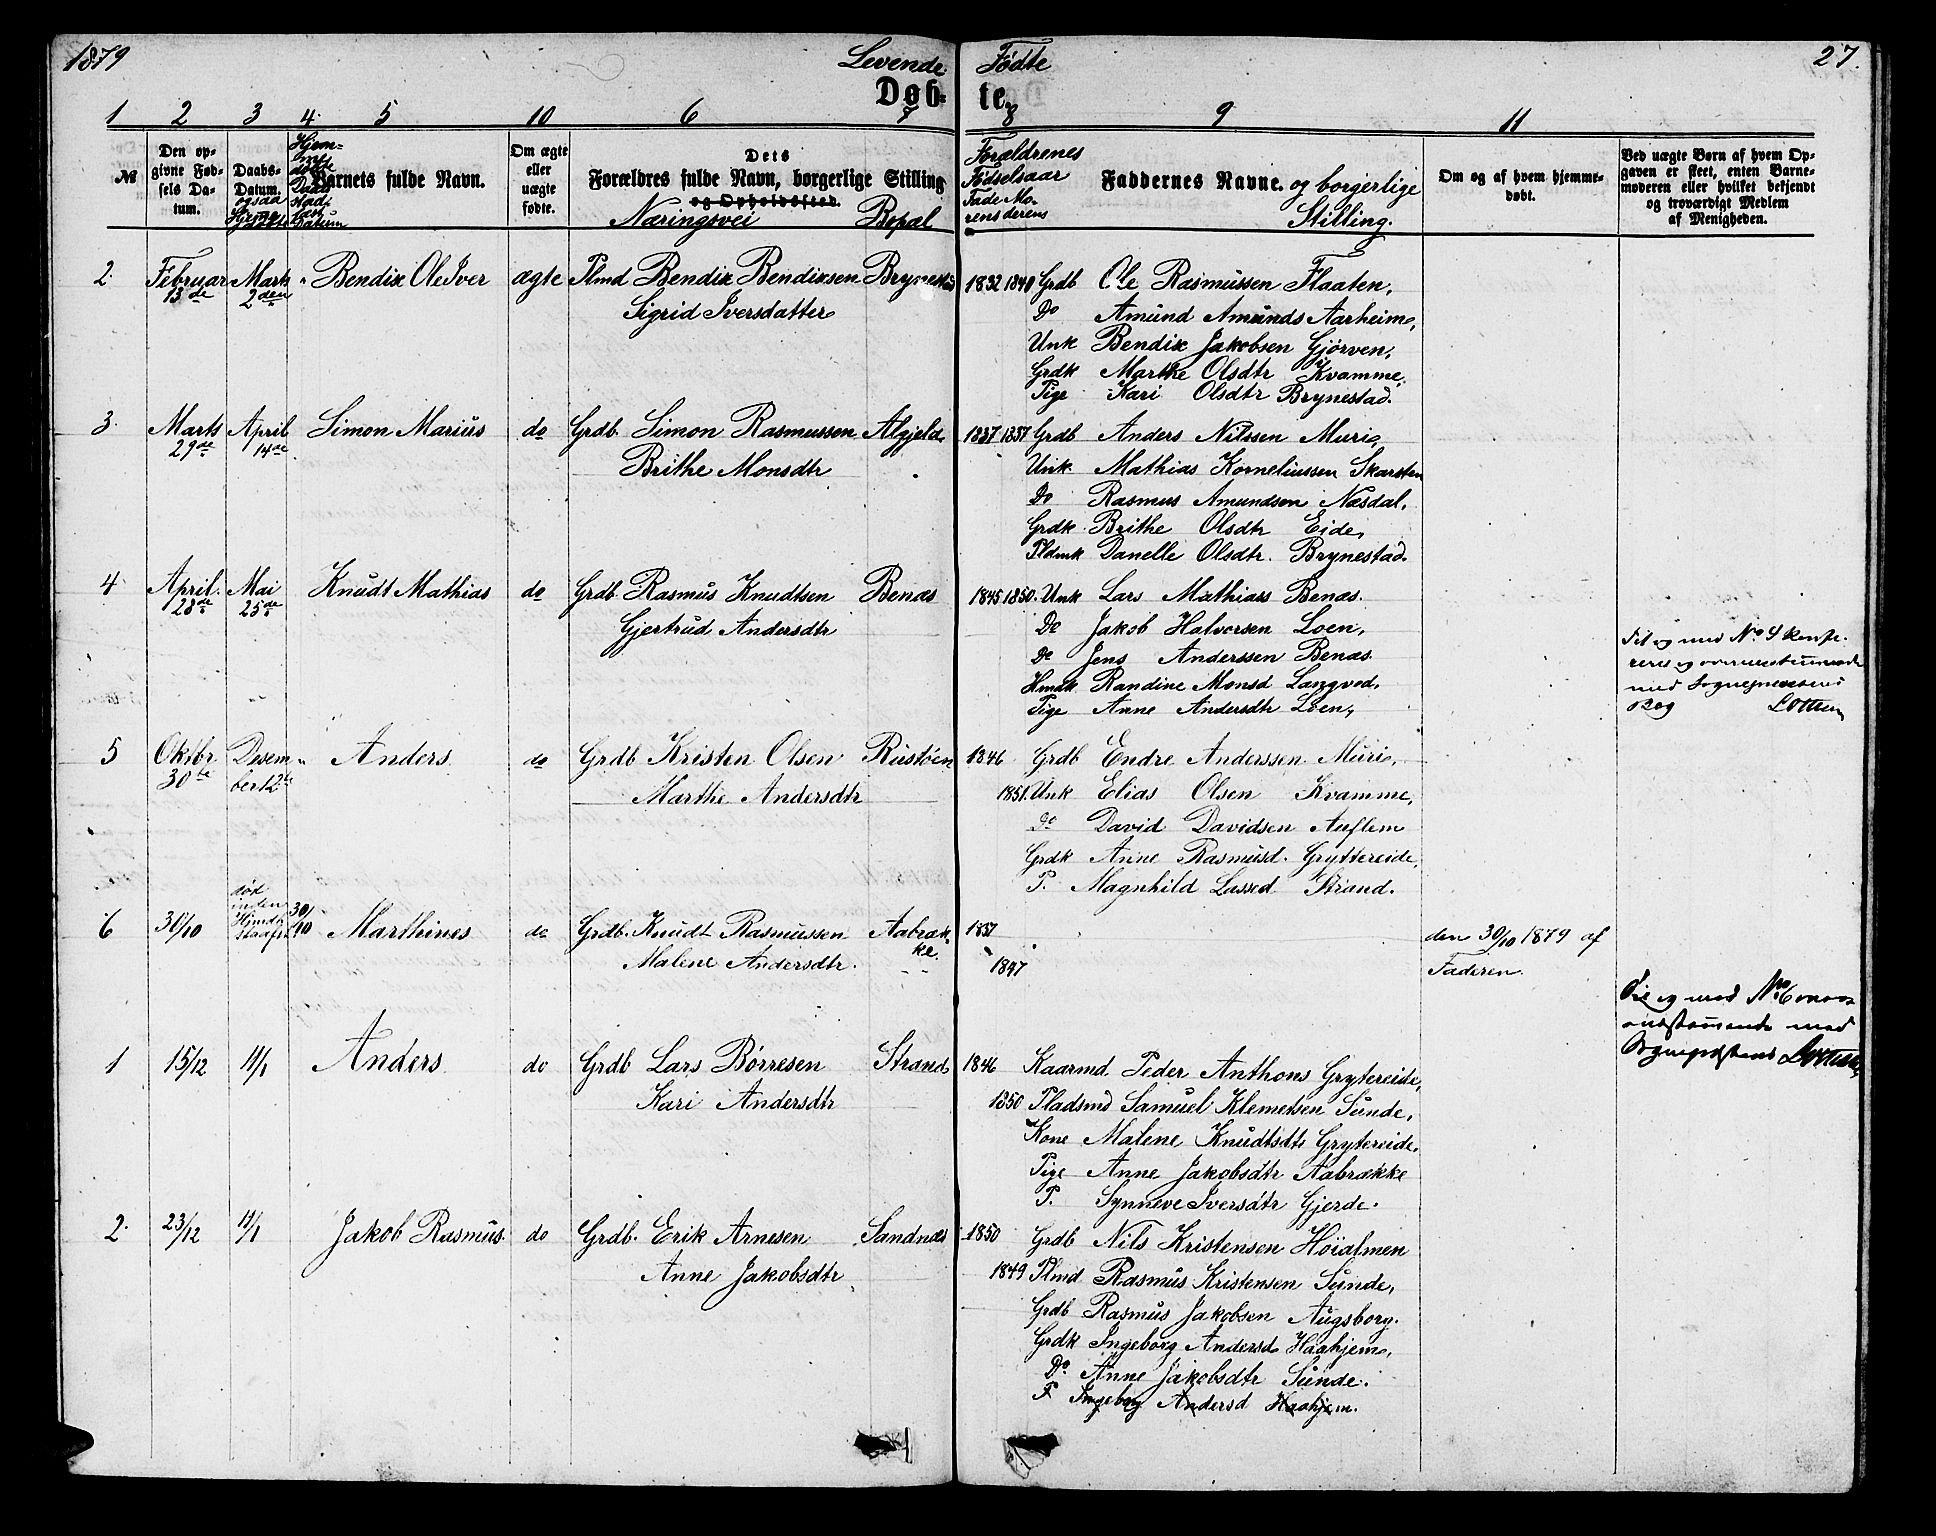 1879 Levende Fødte 27.
Døb- te.
1 2 3 4. 5 10 6 7 8 9 11
№ Den op-givne Fød-sels Da-tum. Daabs-Datum. ogsaa Hjemmedøbte Daab Stadf. Datum Barnets fulde Navn. Om ægte eller uægte fødte. Dets Forældres fulde Navn, borgerlige Stilling og Opholdssted. Næringsvei Bopæl
Forældrenes Fødselsaar Faderens Moderens Faddernes Navne. og borgerlige Stilling. Om og af hvem hjemme-døbt. Ved uægte Børn af hvem Op-gaven er skeet, enten Barne-moderen eller hvilket bekjendt og troværdigt Medlem af Menigheden.
2. Februar Marts " Bendix Ole Iver ægte Plmd Bendix Bendixsen Brynestad 1832 1840 Grdb Ole Rasmussen Flaaten,
13de 2den Sigrid Iversdatter Do Amund Amunds Aarheim,
Unk Bendix Jakobsen Gjørven,
Grdk Marthe Olsdtr Kvamme,
Pige Kari Olsdtr Brynestad.
3. Marts April Simon Marius do Grdb. Simon Rasmussen Algjeld, 1837 1837 Grdb Anders Nilssen Muri,
29de 14de Brithe Monsdtr Unk. Mathias Korneliussen Skarsten
Do Rasmus Amundsen Næsdal,
Grdk. Brithe Olsdtr Eide,
Pldmk Danelle Olsdtr. Brynestad.
4 April. Mai Knudt Mathias do Grdb. Rasmus Knudtsen Benæs 1845 1850. Unk Lars Mathias Benæs.
28de 25de Gjertrud Andersdtr Do Jakob Halvorsen Loen,
Do Jens Anderssen Benæs.
Hmdk. Randine Monsd Langvod,
Pige Anne Andersdtr Loen,
Til og med No 4
med Sognepræstens
Bog
5 Oktbr Desem " Anders do Grdb Kristen Olsen Rustøen 1846 Grdb Endre Anderssen Muri,
30te ber 12te Marthe Andersdtr 1851. Unk Elias Olsen Kvamme,
Do David Davidsen Auflem
Grdk Anne Rasmusd. Gryttereide,
P. Magnhild Lassed Strand.
6 30/10 død inden 30/10 Marthines do Grdb. Knudt Rasmussen Aabræk-ke. den 30/10 1879 af
Malene Andersdtr. 1847 Faderen.
og med No 6
med
1 15/12 11/1 Anders do Grdb Lars Børresen Strand 1846 Kaarmd. Peder Anthons Grytereide,
Kari Andersdtr 1850 Pladsmd Samuel Klemetsen Sunde,
Kone Malene Knudtsdtr Grytereide.
Pige Anne Jakobsdtr Aabrække
P. Synneve Iversdtr Gjerde.
2. 23/12 11/1 Jakob Rasmus. do Grdb. Erik Arnesen Sandnæs 1850 Grdb Nils Kristensen Høialmen
Anne Jakobsdtr 1849 Plmd Rasmus Kristensen Sunde,
Grdb Rasmus Jakobsen Augsborg.
Grdk Ingeborg Andersd Haahjem,
Do Anne Jakobsdtr Sunde.
P Ingeborg Andersd Haahjem.